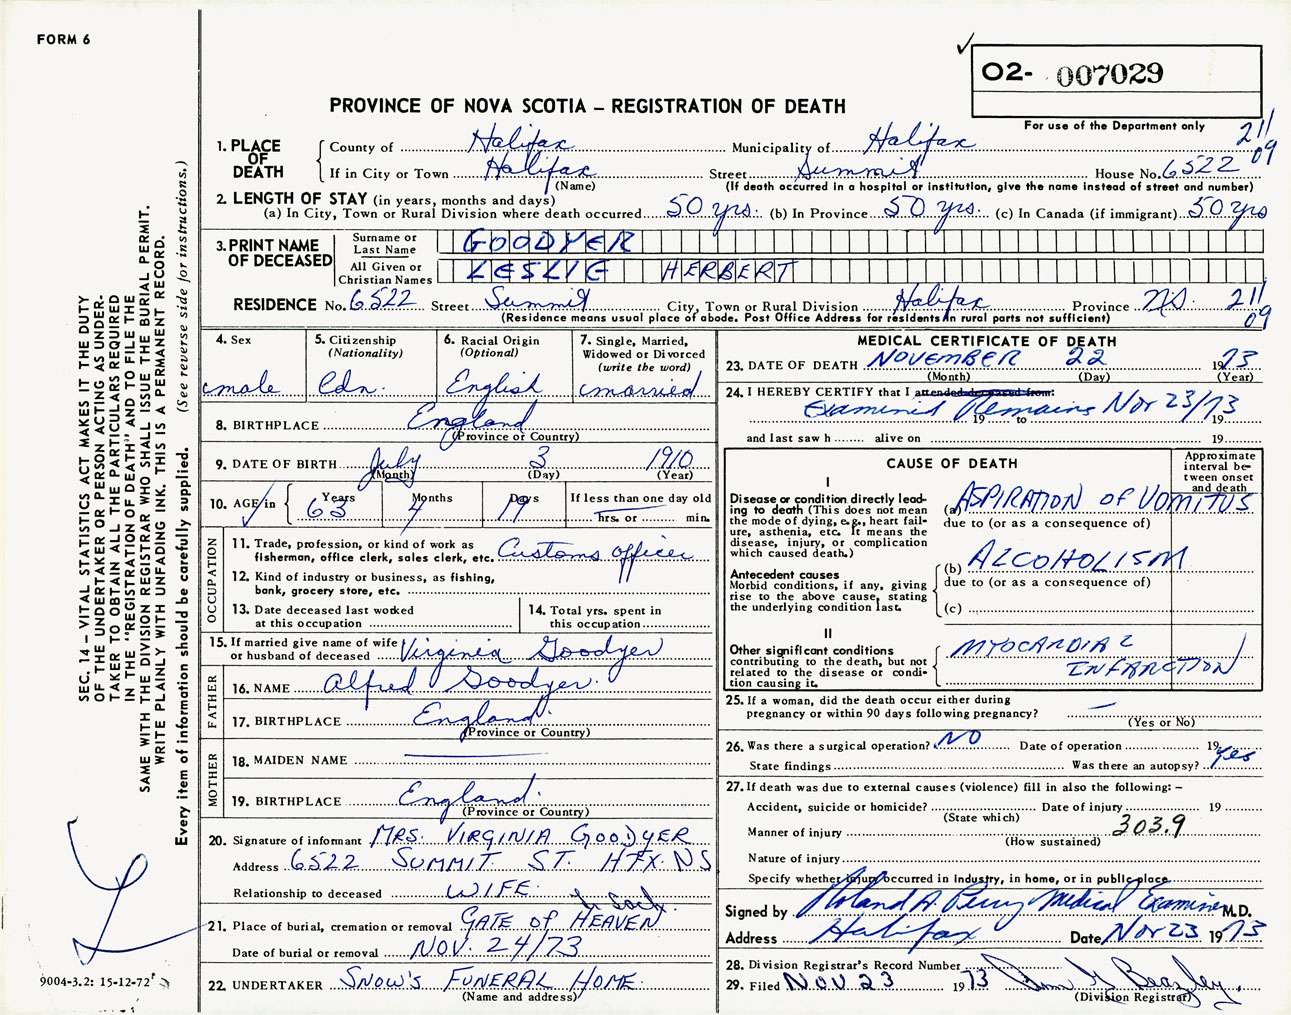 FORM 6
O2- 007029
PROVINCE OF NOVA SCOTIA – REGISTRATION OF DEATH
For use of the Department only
211
09
1. PLACE OF DEATH
County of Halifax Municipality of Halifax
If in City or Town Halifax Street Summit House No. 6522
(Name) (If death occurred in a hospital or institution, give the name instead of street and number)
2. LENGTH OF STAY (in years, months and days)
(a) In City, Town or Rural Division where death occurred 50 yrs. (b) In Province 50 yrs. (c) In Canada (if immigrant) 50 yrs
3. PRINT NAME OF DECEASED
Surname or Last Name GOODYER
All Given or Christian Names LESLIE HERBERT
RESIDENCE No. 6522 Street Summit City, Town or Rural Division Halifax Province N.S. 211
09
(Residence means usual place of abode. Post Office Address for residents in rural parts not sufficient)
4. Sex
male
5. Citizenship
(Nationality)
Cdn.
6. Racial Origin
(Optional)
English
7. Single, Married,
Widowed or Divorced
(write the word)
married
8. BIRTHPLACE England
(Province or Country)
9. DATE OF BIRTH July 3 1910
(Month) (Day) (Year)
10. AGE in
Years 63
Months 4
Days 19
If less than one day old
hrs. or min.
OCCUPATION
11. Trade, profession, or kind of work as
fisherman, office clerk, sales clerk, etc. Customs officer
12. Kind of industry or business, as fishing,
bank, grocery store, etc.
13. Date deceased last worked
at this occupation
14. Total yrs. spent in
this occupation
15. If married give name of wife
or husband of deceased Virginia Goodyer
FATHER
16. NAME Alfred Goodyer.
17. BIRTHPLACE England.
(Province or Country)
MOTHER
18. MAIDEN NAME
19. BIRTHPLACE England.
(Province or Country)
20. Signature of informant MRS. VIRGINIA GOODYER
Address 6522 SUMMIT ST. HFX. NS
Relationship to deceased WIFE.
21. Place of burial, cremation or removal GATE OF HEAVEN
Date of burial or removal NOV. 24/73
22. UNDERTAKER SNOW'S FUNERAL HOME.
(Name and address)
MEDICAL CERTIFICATE OF DEATH
23. DATE OF DEATH NOVEMBER 22 1973
(Month) (Day) (Year)
24. I HEREBY CERTIFY that I attended deceased from:
Examined Remains Nov 23/73
19 to 19
and last saw h alive on 19
CAUSE OF DEATH
Approximate
interval be-
tween onset
and death
I
Disease or condition directly lead-
ing to death (This does not mean
the mode of dying, e.g., heart fail-
ure, asthenia, etc. It means the
disease, injury, or complication
which caused death.)
(a) ASPIRATION OF VOMITUS
due to (or as a consequence of)
Antecedent causes
Morbid conditions, if any, giving
rise to the above cause, stating
the underlying condition last.
(b) ALCOHOLISM
due to (or as a consequence of)
(c)
II
Other significant conditions
contributing to the death, but not
related to the disease or condi-
tion causing it.
MYOCARDIAL
INFARCTION
25. If a woman, did the death occur either during
pregnancy or within 90 days following pregnancy? —
(Yes or No)
26. Was there a surgical operation? NO Date of operation 19
State findings Was there an autopsy? Yes
27. If death was due to external causes (violence) fill in also the following: –
Accident, suicide or homicide? Date of injury 19
(State which)
Manner of injury 303.9
(How sustained)
Nature of injury
Specify whether injury occurred in industry, in home, or in public place
Signed by Roland A. Perry Medical Examiner M.D.
Address Halifax Date Nov 23 1973
28. Division Registrar's Record Number
29. Filed NOV 23 1973
(Division Registrar)
SEC. 14 – VITAL STATISTICS ACT MAKES IT THE DUTY
OF THE UNDERTAKER OR PERSON ACTING AS UNDER-
TAKER TO OBTAIN ALL THE PARTICULARS REQUIRED
IN THE "REGISTRATION OF DEATH" AND TO FILE THE
SAME WITH THE DIVISION REGISTRAR WHO SHALL ISSUE THE BURIAL PERMIT.
WRITE PLAINLY WITH UNFADING INK. THIS IS A PERMANENT RECORD.
Every item of information should be carefully supplied. (See reverse side for instructions.)
9004-3.2: 15-12-72